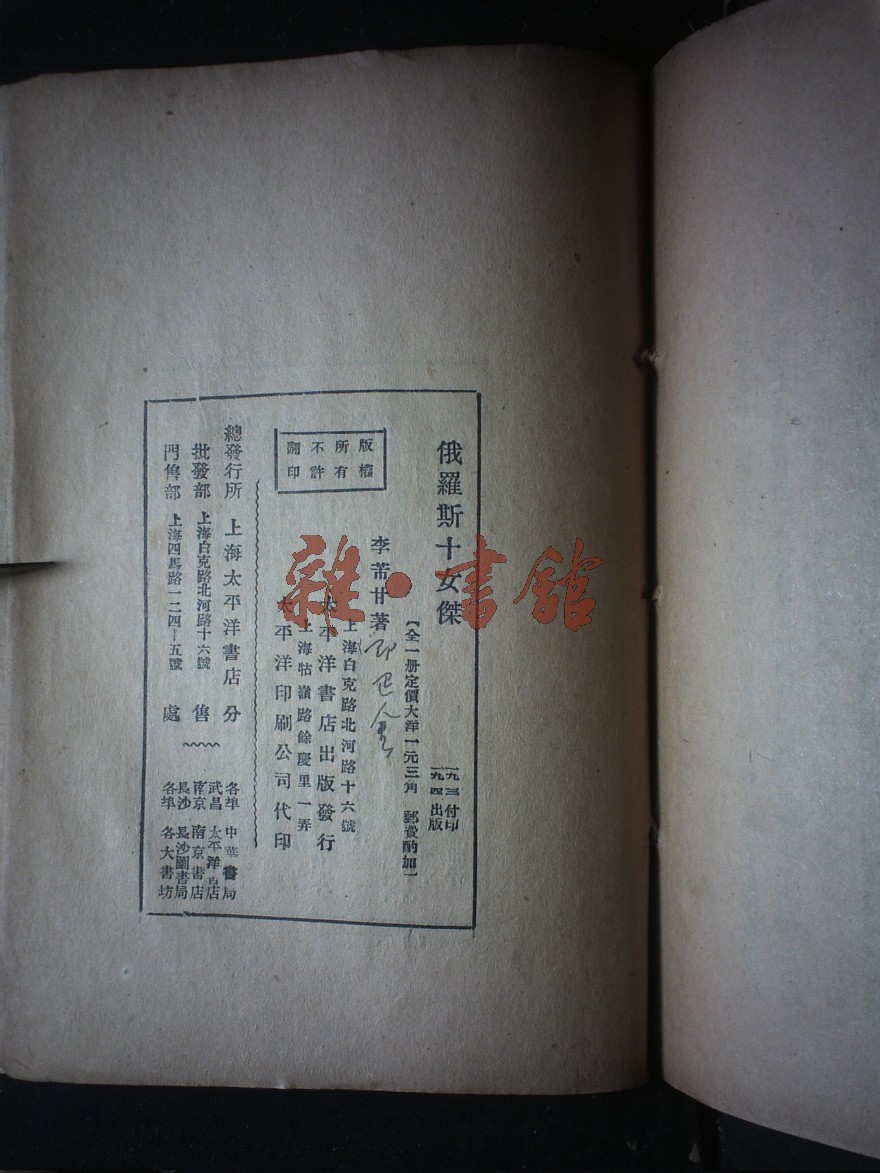 俄羅斯十女傑
【全一册定價大洋一元三角 郵費酌加】
一九、三、付印
一九、四、出版
李芾甘著 即巴金
版權
所有
不許
翻印
上海白克路北河路十六號
太平洋書店出版發行
上海牯嶺路餘慶里一弄
太平洋印刷公司代印
總發行所 上海太平洋書店
批發部 上海白克路北河路十六號
門售部 上海四馬路一二四—五號
分售處
各埠 中華書局
武昌 太平洋書店
南京 南京書店
長沙 長沙圖書局
各埠 各大書坊
雜·書館